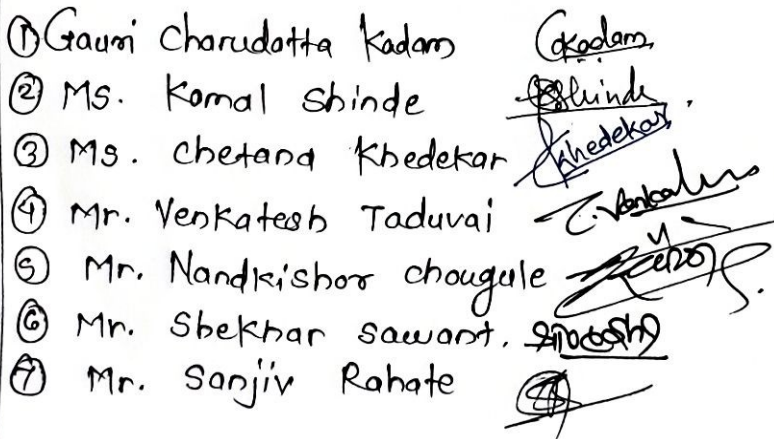 ① Gauri Charudatta Kadam GKadam
② MS. Komal Shinde Shinde
③ MS. Chetana Khedekar Khedekar
④ Mr. Venkatesh Taduvai T. Venkatesh
⑤ Mr. Nandkishor chougule
⑥ Mr. Shekhar Sawant.
⑦ Mr. Sanjiv Rahate